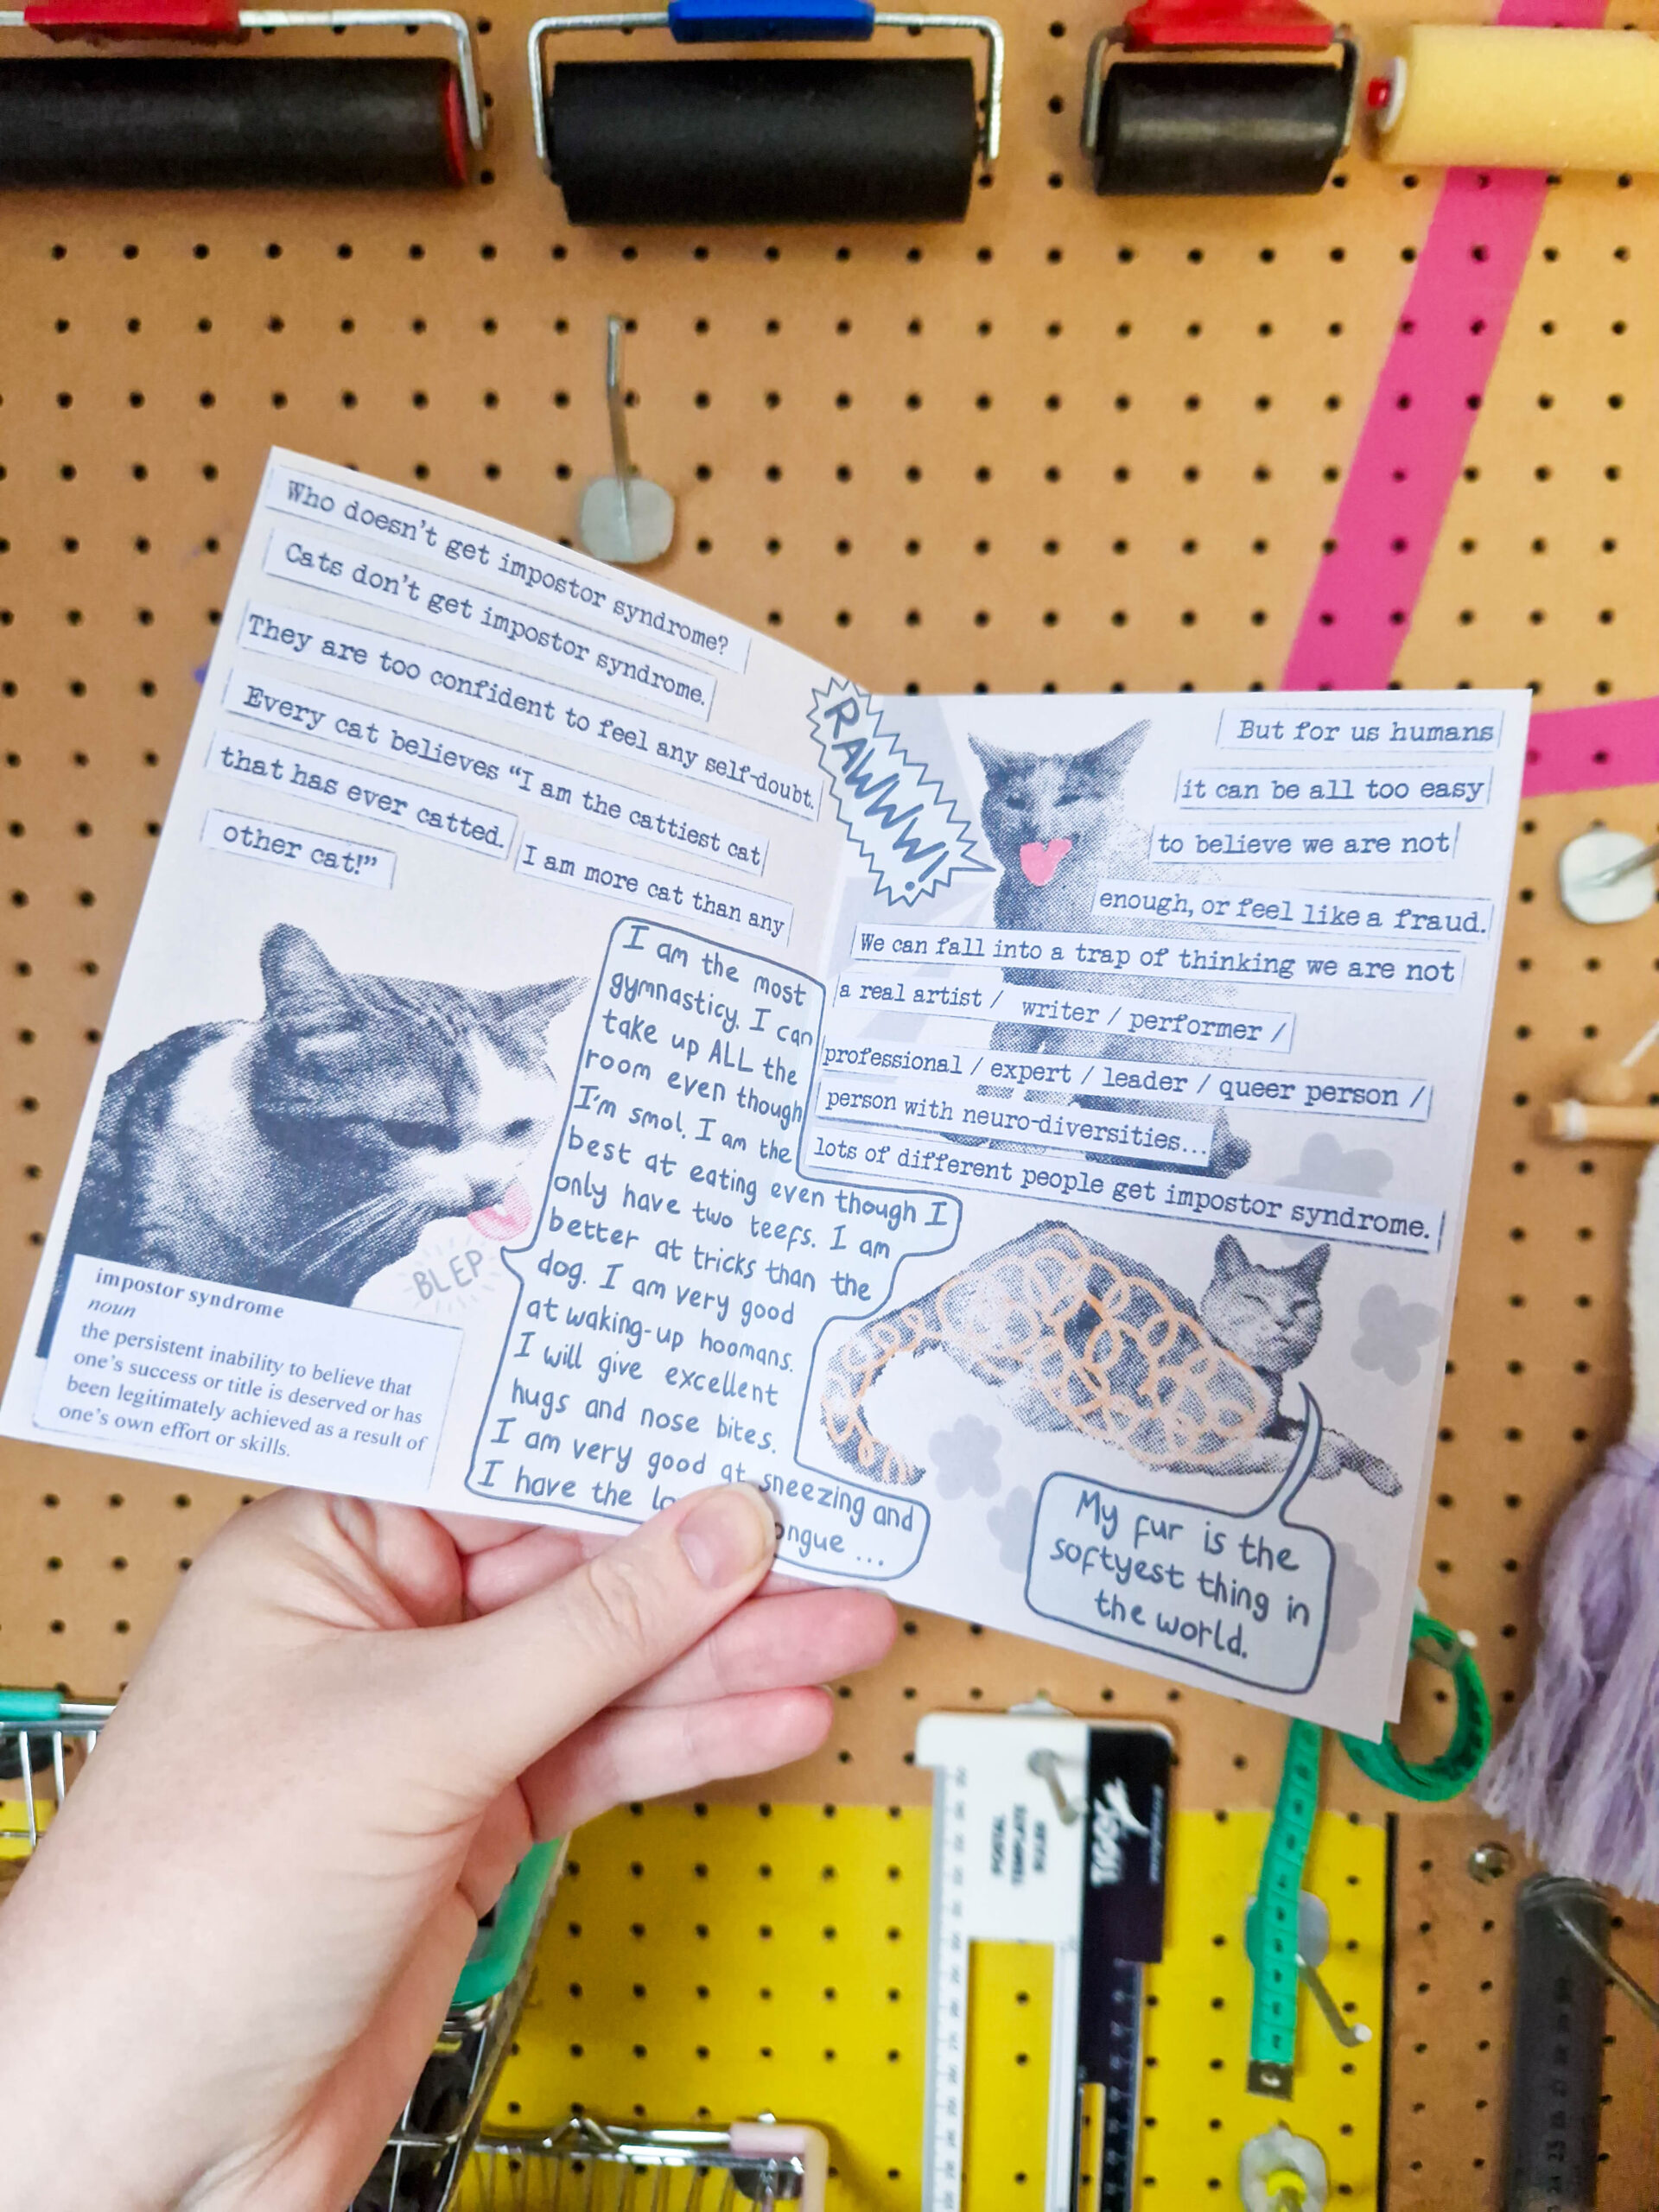 Who doesn't get impostor syndrome?
Cats don't get impostor syndrome.
They are too confident to feel any self-doubt.
Every cat believes “I am the cattiest cat
that has ever catted.
I am more cat than any
other cat!”
I am the most
gymnasticy. I can
take up ALL the
room even though
I'm smol. I am the
best at eating even though I
only have two teefs. I am
better at tricks than the
dog. I am very good
at waking-up hoomans.
I will give excellent
hugs and nose bites.
I am very good at sneezing and
I have the
...
BLEP
impostor syndrome
noun
the persistent inability to believe that
one's success or title is deserved or has
been legitimately achieved as a result of
one's own effort or skills.
RAWWW!
But for us humans
it can be all too easy
to believe we are not
enough, or feel like a fraud.
We can fall into a trap of thinking we are not
a real artist / writer / performer /
professional / expert / leader / queer person /
person with neuro-diversities...
lots of different people get impostor syndrome.
My fur is the
softyest thing in
the world.
POSTAL
TEMPLATE
RULER